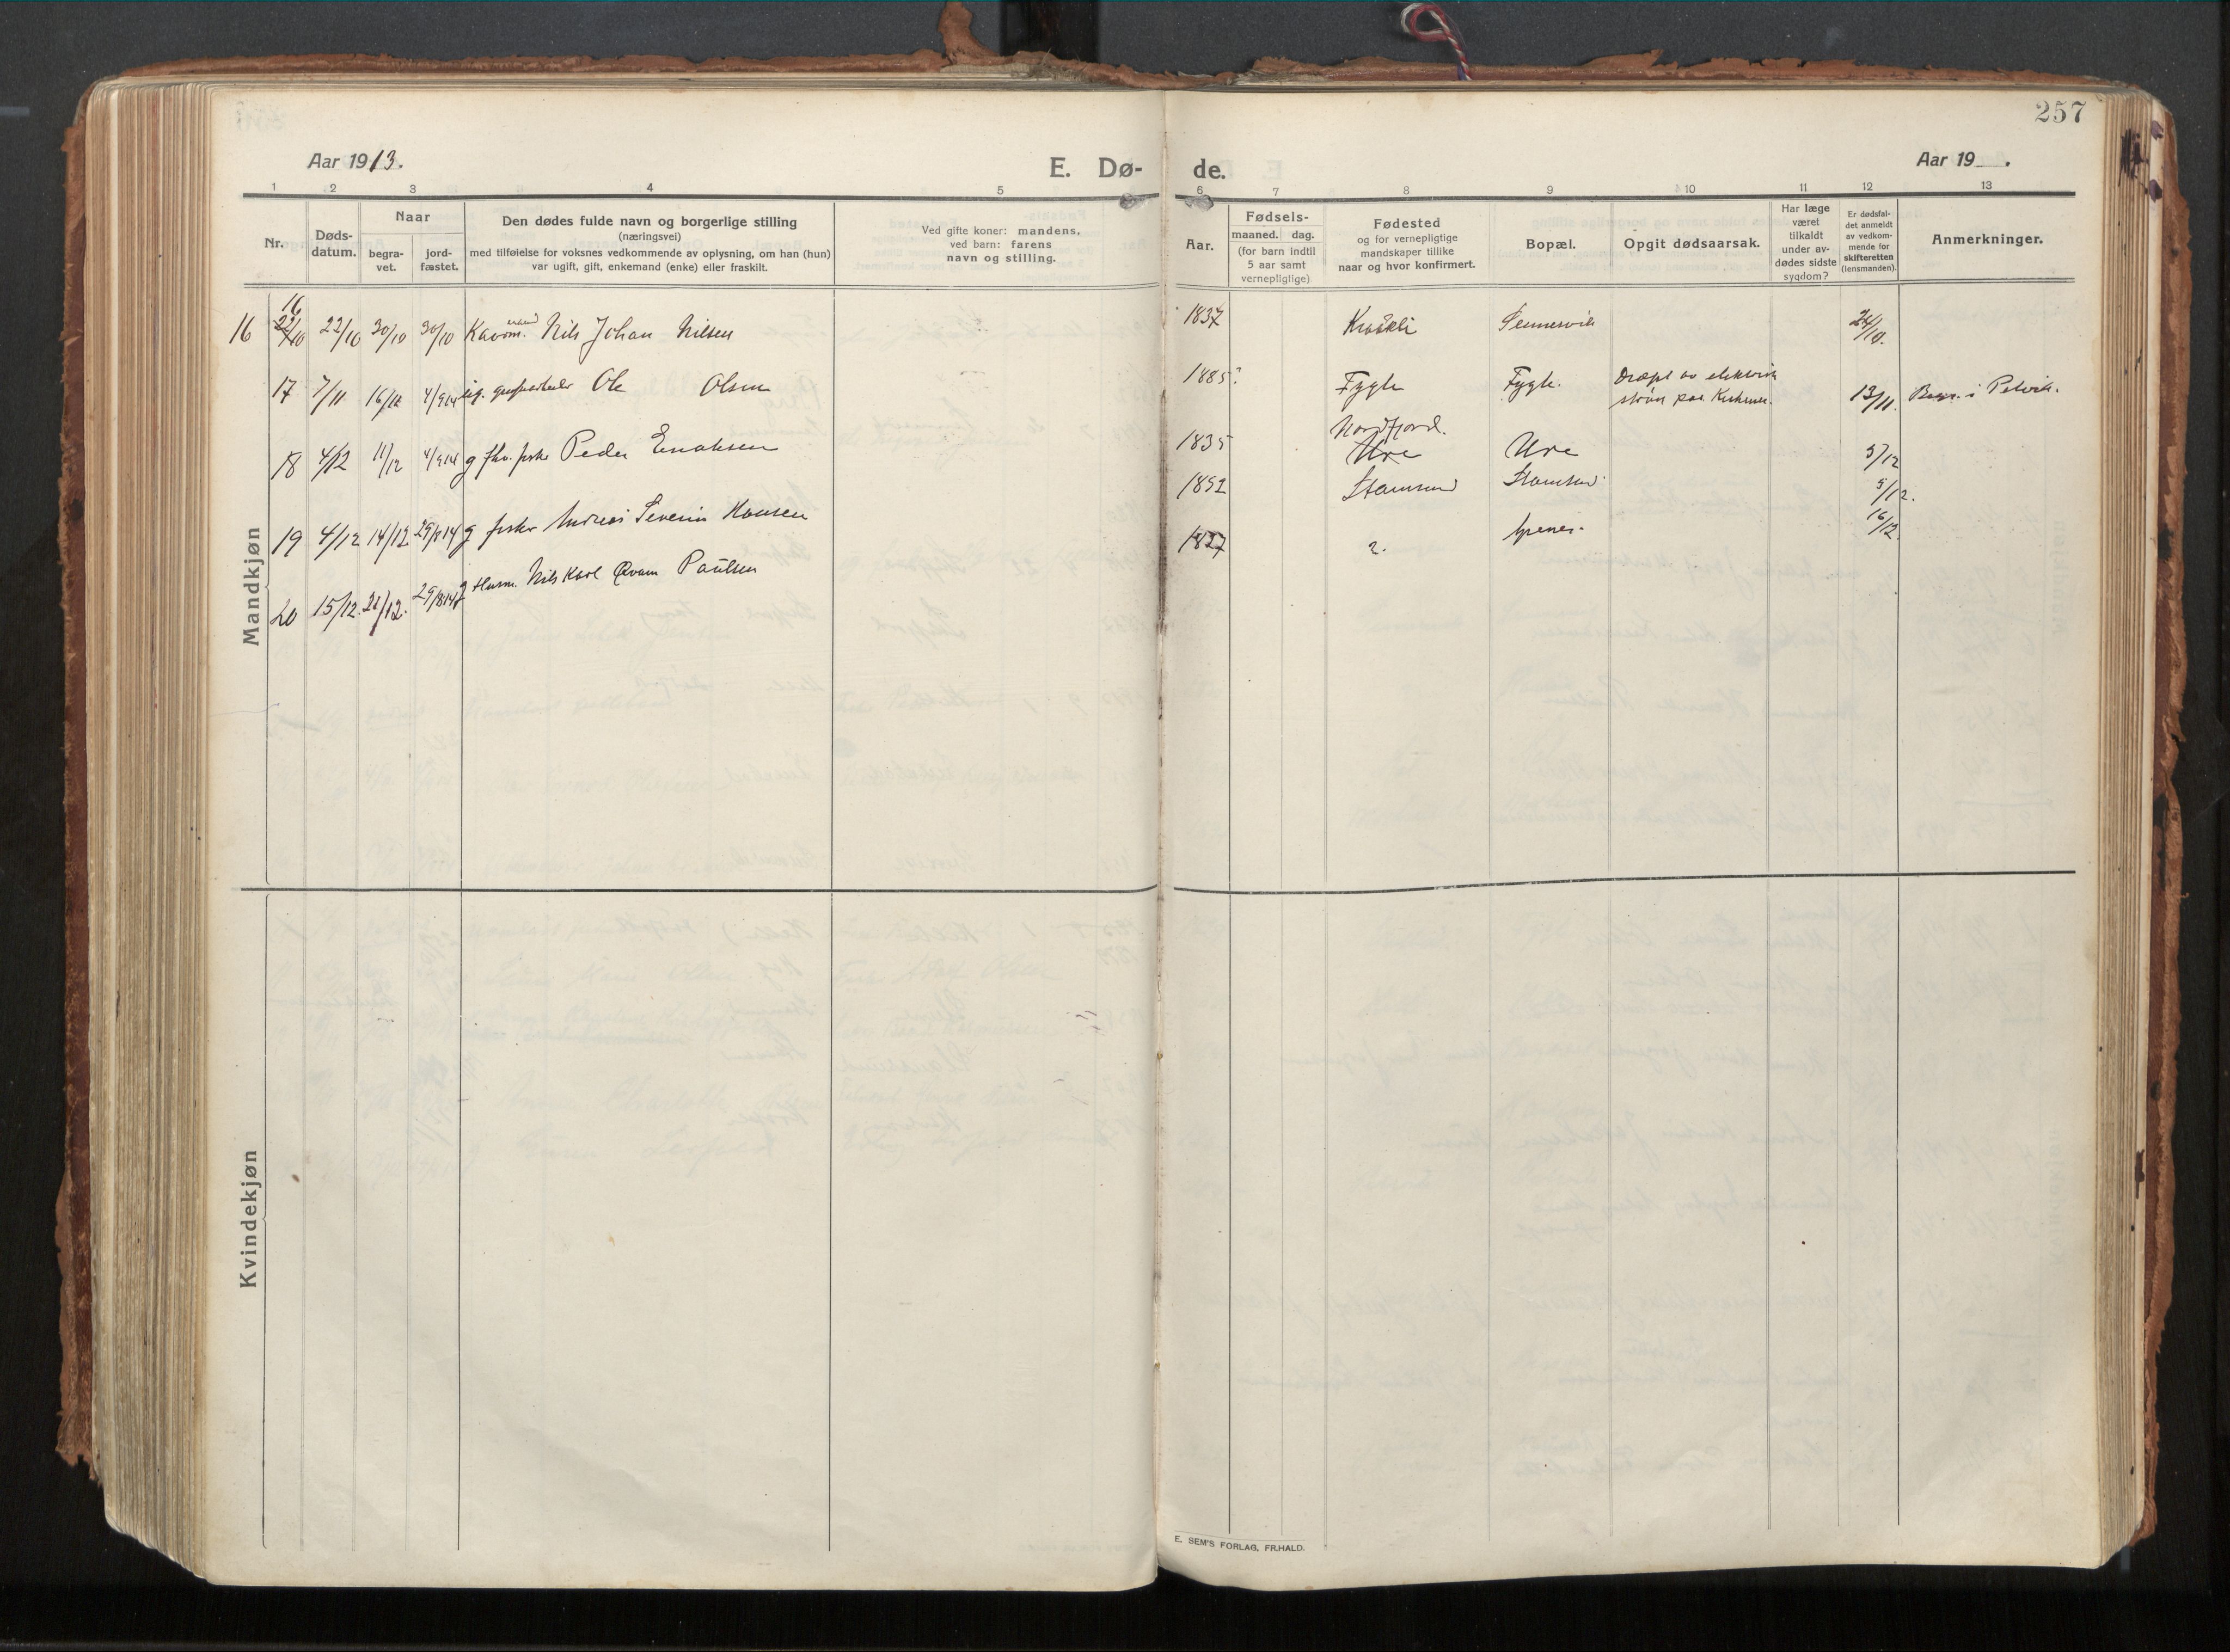 257
Aar 1913.
E. Dø-
de.
Aar 19 .
1 2 3 4 5
6 7 8 9 10 11 12 13
Nr.
Døds-
datum.
Naar
begra-
vet.
jord-
fæstet.
Den dødes fulde navn og borgerlige stilling
(næringsvei)
med tilføielse for voksnes vedkommende av oplysning, om han (hun)
var ugift, gift, enkemand (enke) eller fraskilt.
Ved gifte koner: mandens,
ved barn: farens
navn og stilling.
Aar.
Fødsels-
maaned. dag.
(for barn indtil
5 aar samt
vernepligtige)
Fødested
og for vernepligtige
mandskaper tillike
naar og hvor konfirmert.
Bopæl.
Opgit dødsaarsak.
Har læge
været
tilkaldt
under av-
dødes sidste
sygdom?
Er dødsfal-
det anmeldt
av vedkom-
mende for
skifteretten
(lensmanden).
Anmerkninger.
Mandkjøn
16
16 22/10 30/10 30/10 Nils Johan Nilsen 1837 Sennesvik 24/10.
17 7/11 16/11 4/9 14 Ole Olsen 1885? Fygle Fygle. Dræpt av elektrisk
13/11.
Nordfjord.
18 4/12 11/12 4/9 14 g Peder Enoksen 1835 Ure Ure 5/12
19 4/12 14/12 29/8 14 g fisker Andreas Severin Hansen 1892 Stamsund Stamsund 5/12.
20 15/12 21/12. 29/8 14 Nils Karl Qvam Paulsen 1827 ?. 16/12.
Kvindekjøn
E. SEM'S FORLAG, FR.HALD.